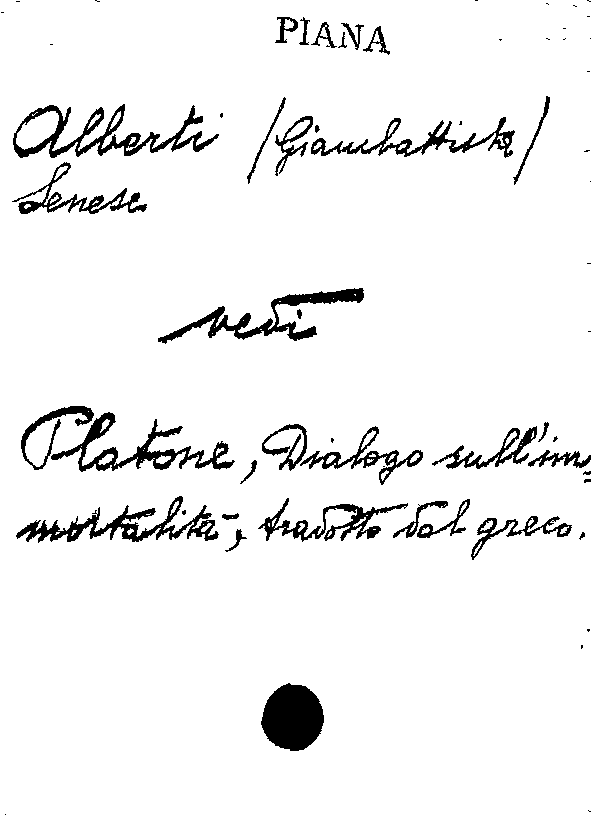 PIANA
Alberti (Giambattista)
Senese
vedi
Platone, Dialogo sull'im=
mortalità, tradotto dal greco.